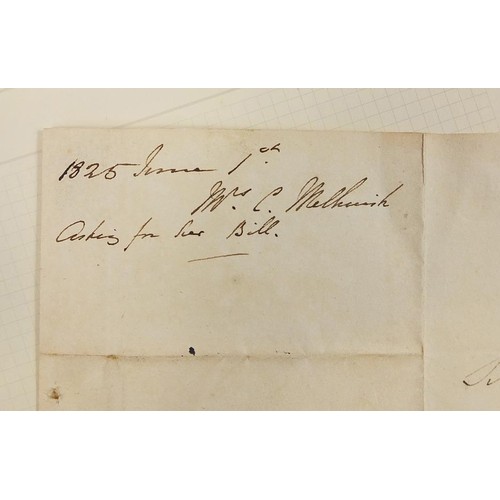 1825 June 1st
Mrs. C. Melhuish
Asking for her Bill.